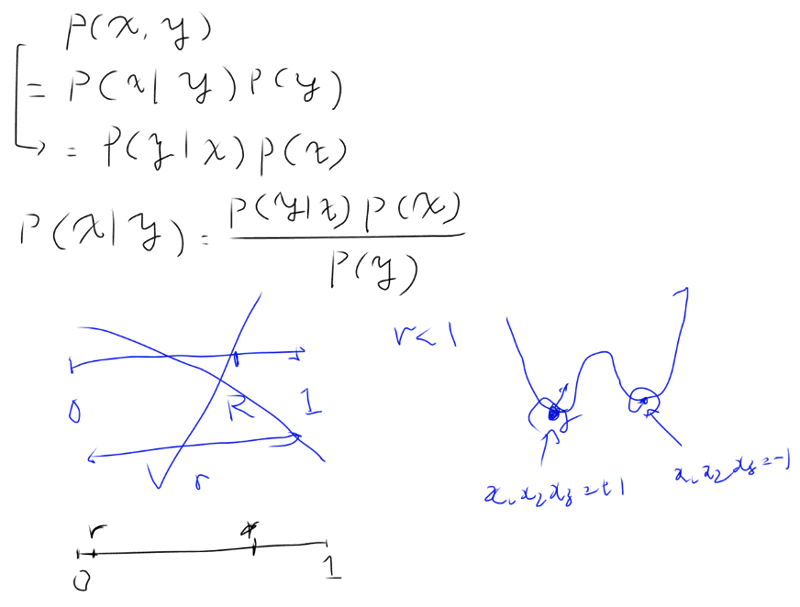 P(x, y)
= P(x | y) P(y)
= P(y | x) P(x)
P(x | y) = P(y | x) P(x) / P(y)
r < 1
0 R 1
r
x₁ x₂ x₃ = +1
x₁ x₂ x₃ = -1
r
0 1